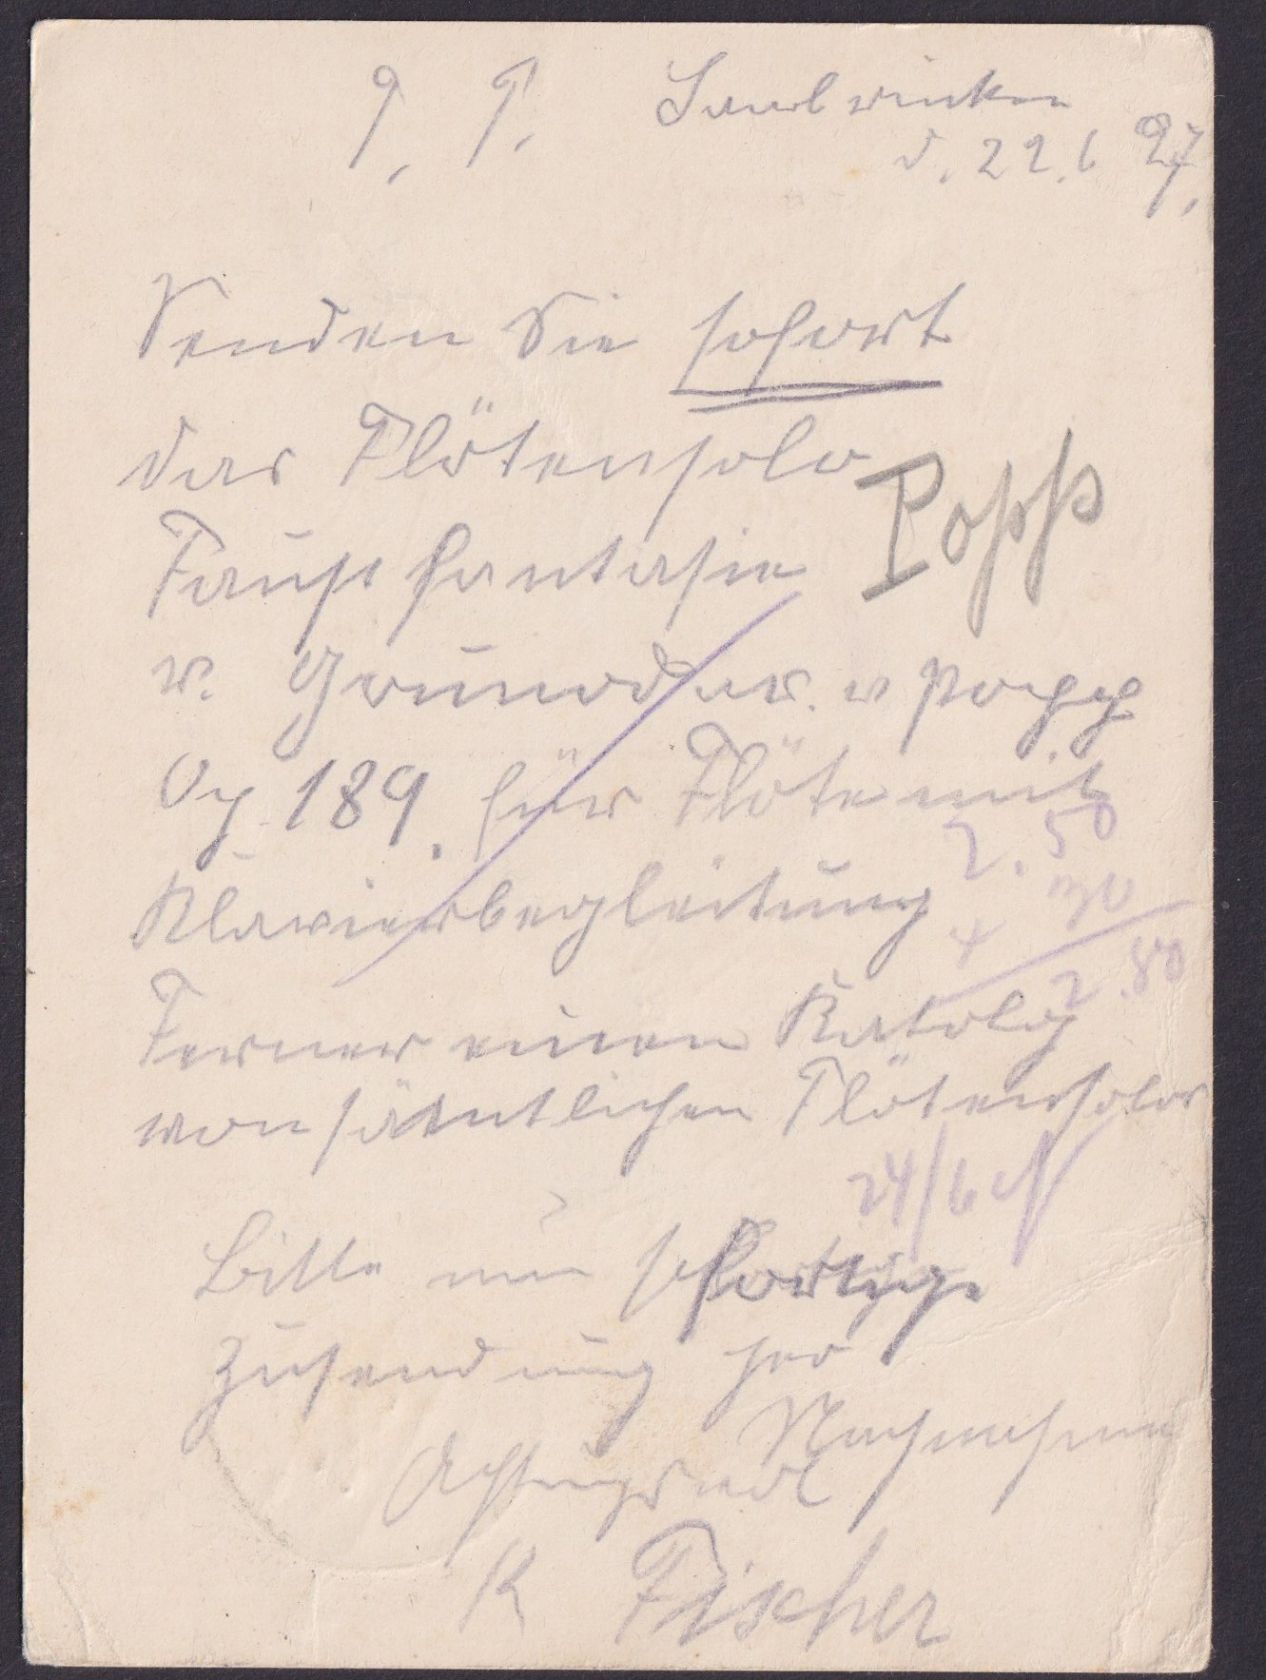 P. P. Saarbrücken
d. 22.6 27.
Senden Sie sofort
das Flötensolo
Popp
Faust fantasie
v. Gounod ar. v Popp
Op. 189. für Flöte mit
2.50
Klavierbegleitung
30
2.80
Ferner einen Katolog
von sämtlichen Flötensolos
24/6
Bitte um sofortige
Zusendung per
Nachnahme
Achtungsvoll
K Fischer